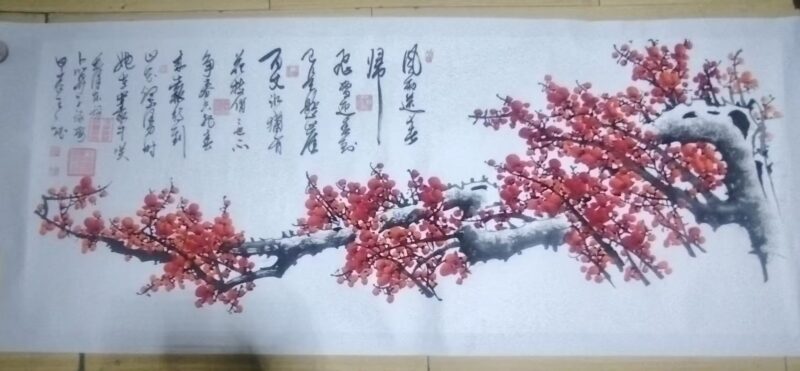 風雨送春
歸
飛雪迎春到
已是懸崖
百丈冰猶有
花枝俏
争春只把春
来報待到
山花爛漫時
她在叢中笑
卜算子詠梅